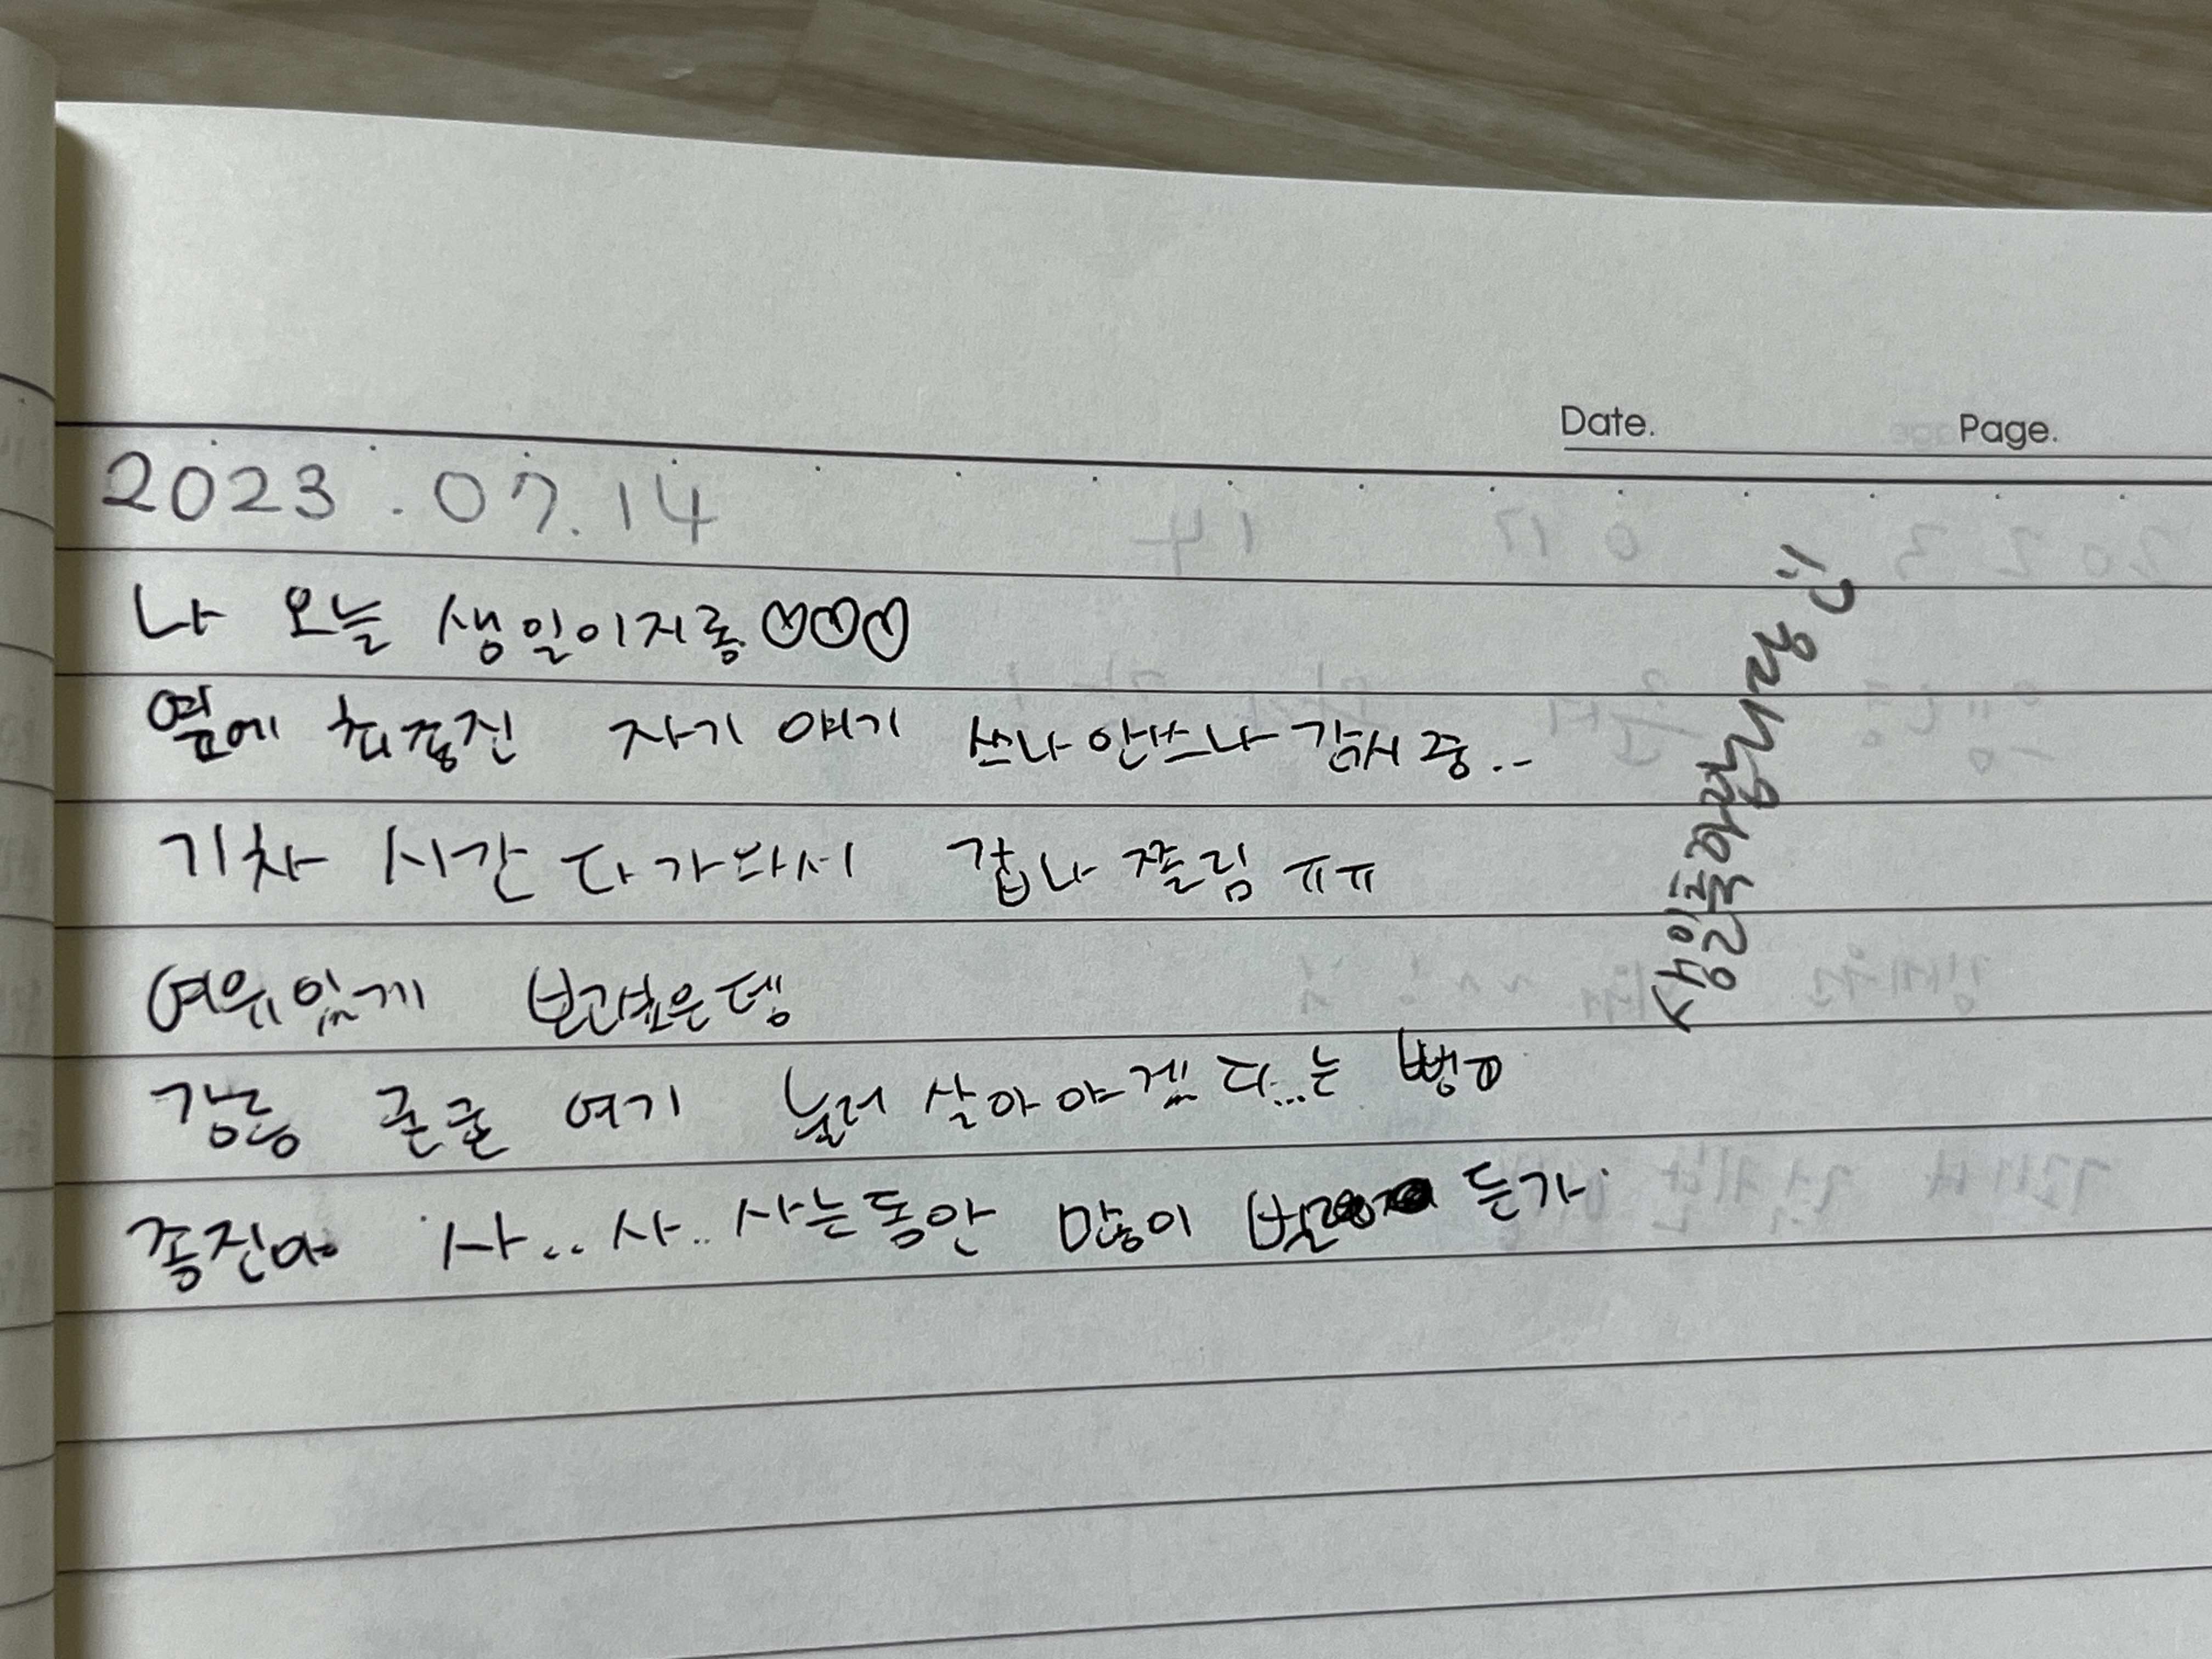 Date.
Page.
2023.07.14
나 오늘 생일이지롱♡♡♡
옆에 최종진 자기 얘기 쓰나 안쓰나 감시 중..
기차 시간 다가와서 겁나 쫄림 ㅠㅠ
여유있게 보고싶은뎅
강릉 굳굳 여기 눌러 살아야겠다...는 뻥ㅎ
종진아 사.. 사.. 사는동안 많이 든가
생일축하해